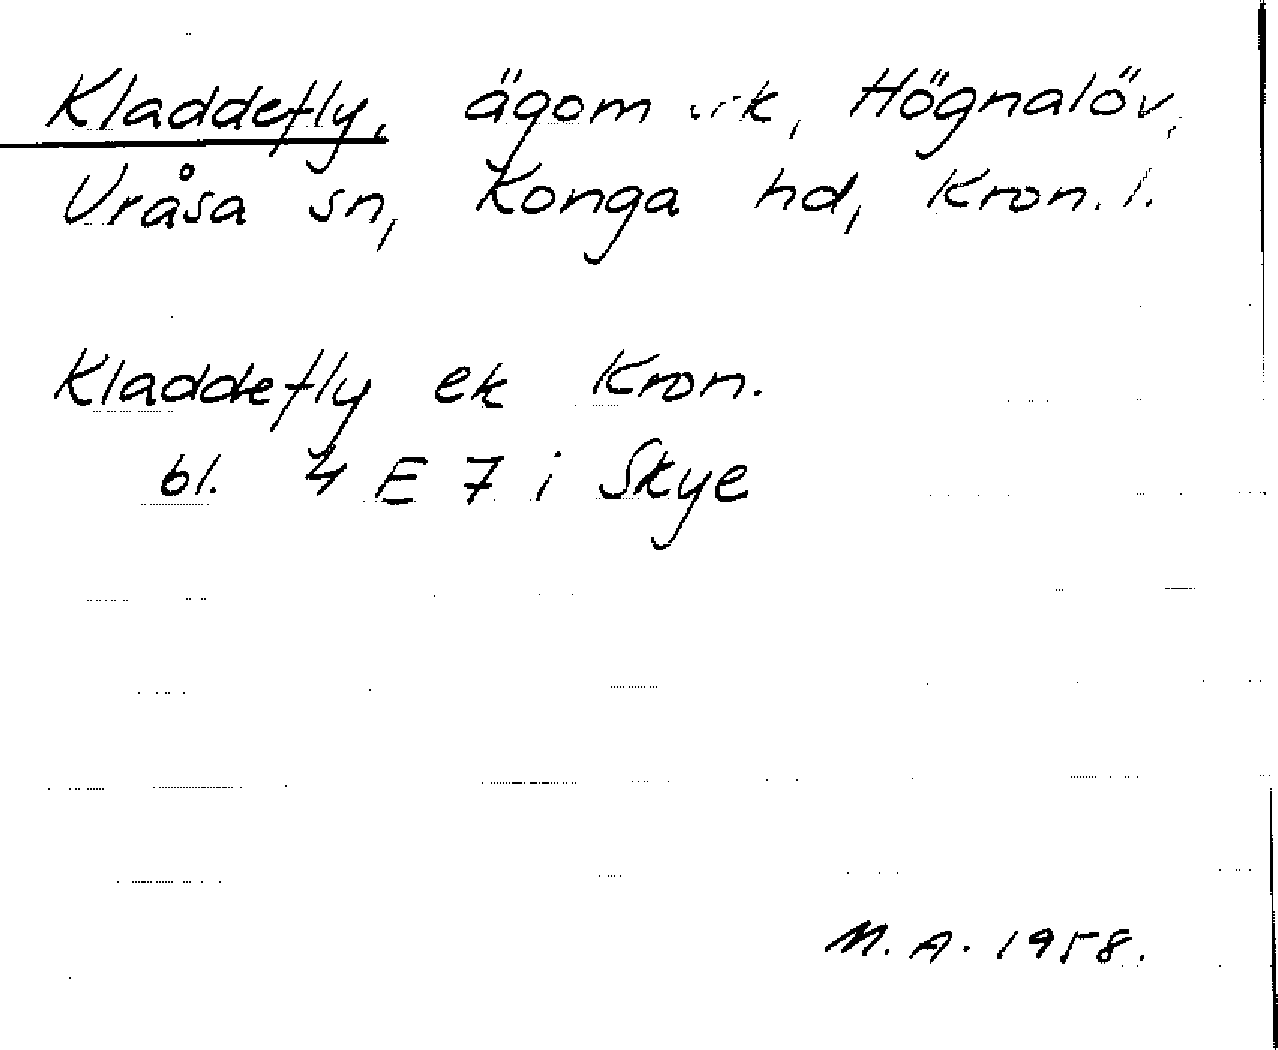 Kladdefly, ägom Högnalöv,
Uråsa sn, Konga hd, Kron. l.
Kladdefly ek Kron.
bl. 4 E 7 i Skye
M. A. 1958.